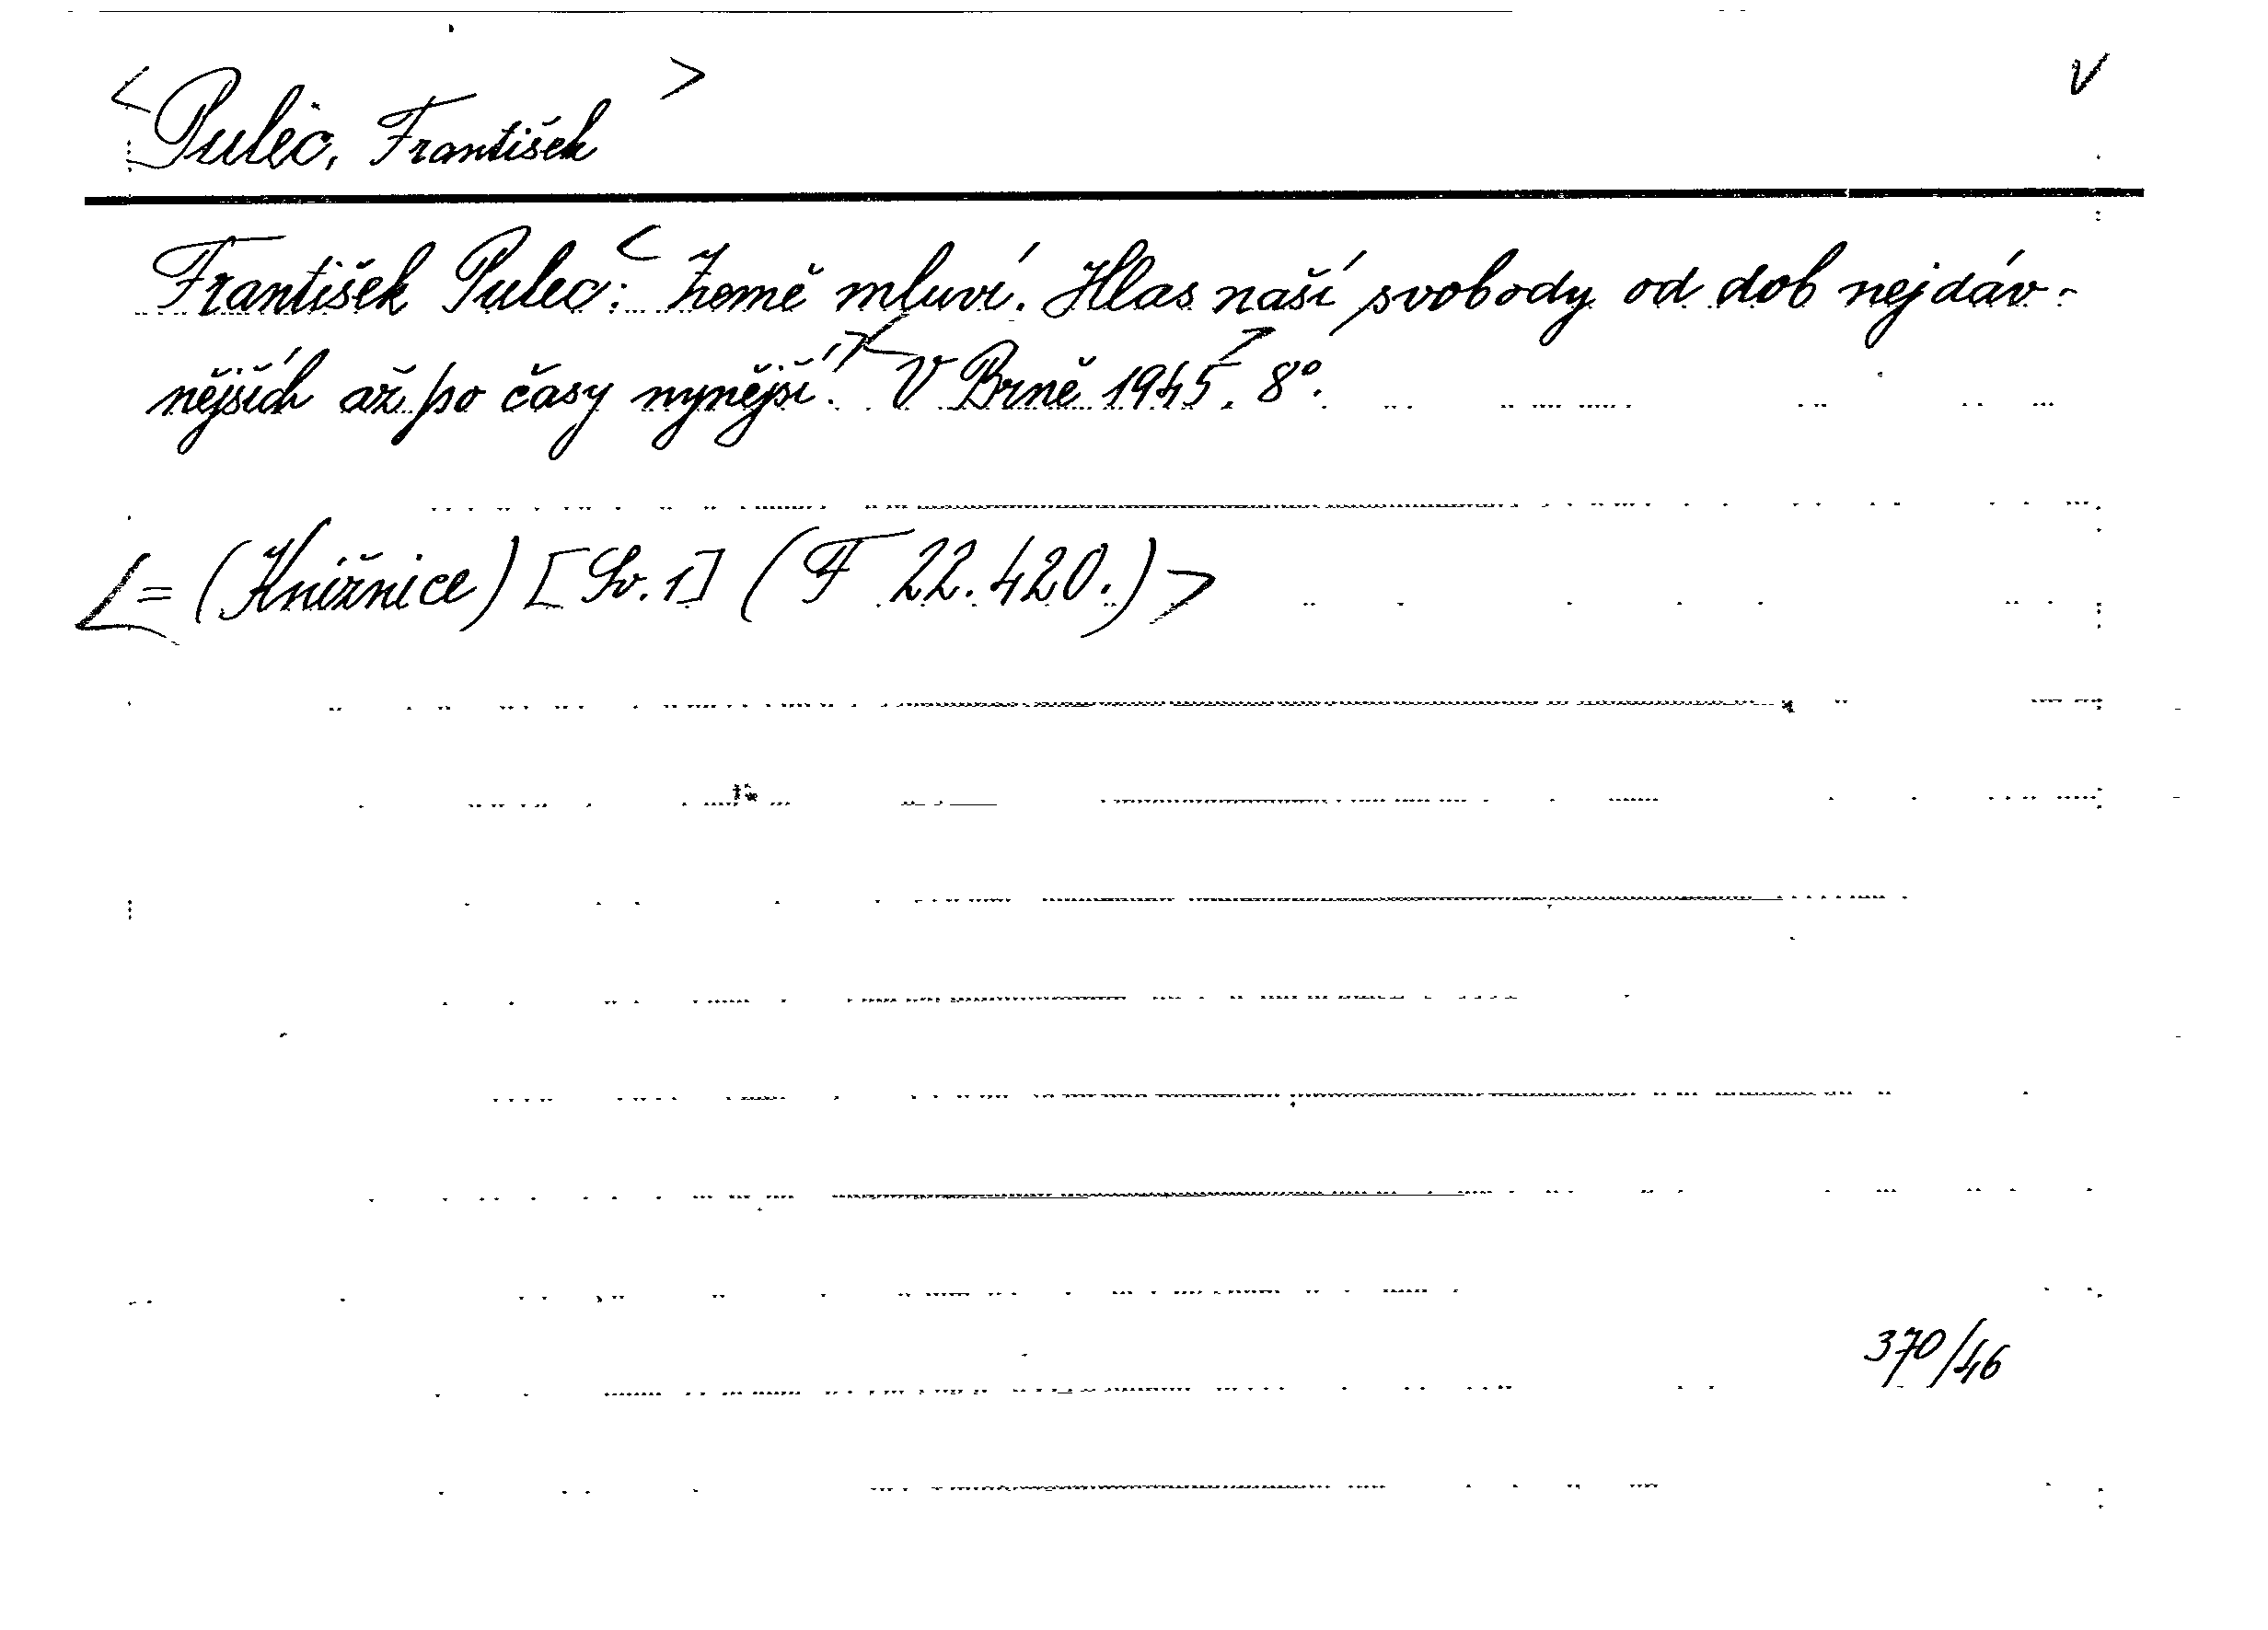 <Pulec, František> V
František Pulec: <Země mluví. Hlas naší svobody od dob nejdáv-
nějších až po časy nynější.>< V Brně 1945>. 8°.
<= (Knižnice) [Sv. 1] (F 22.420.)>
370/46